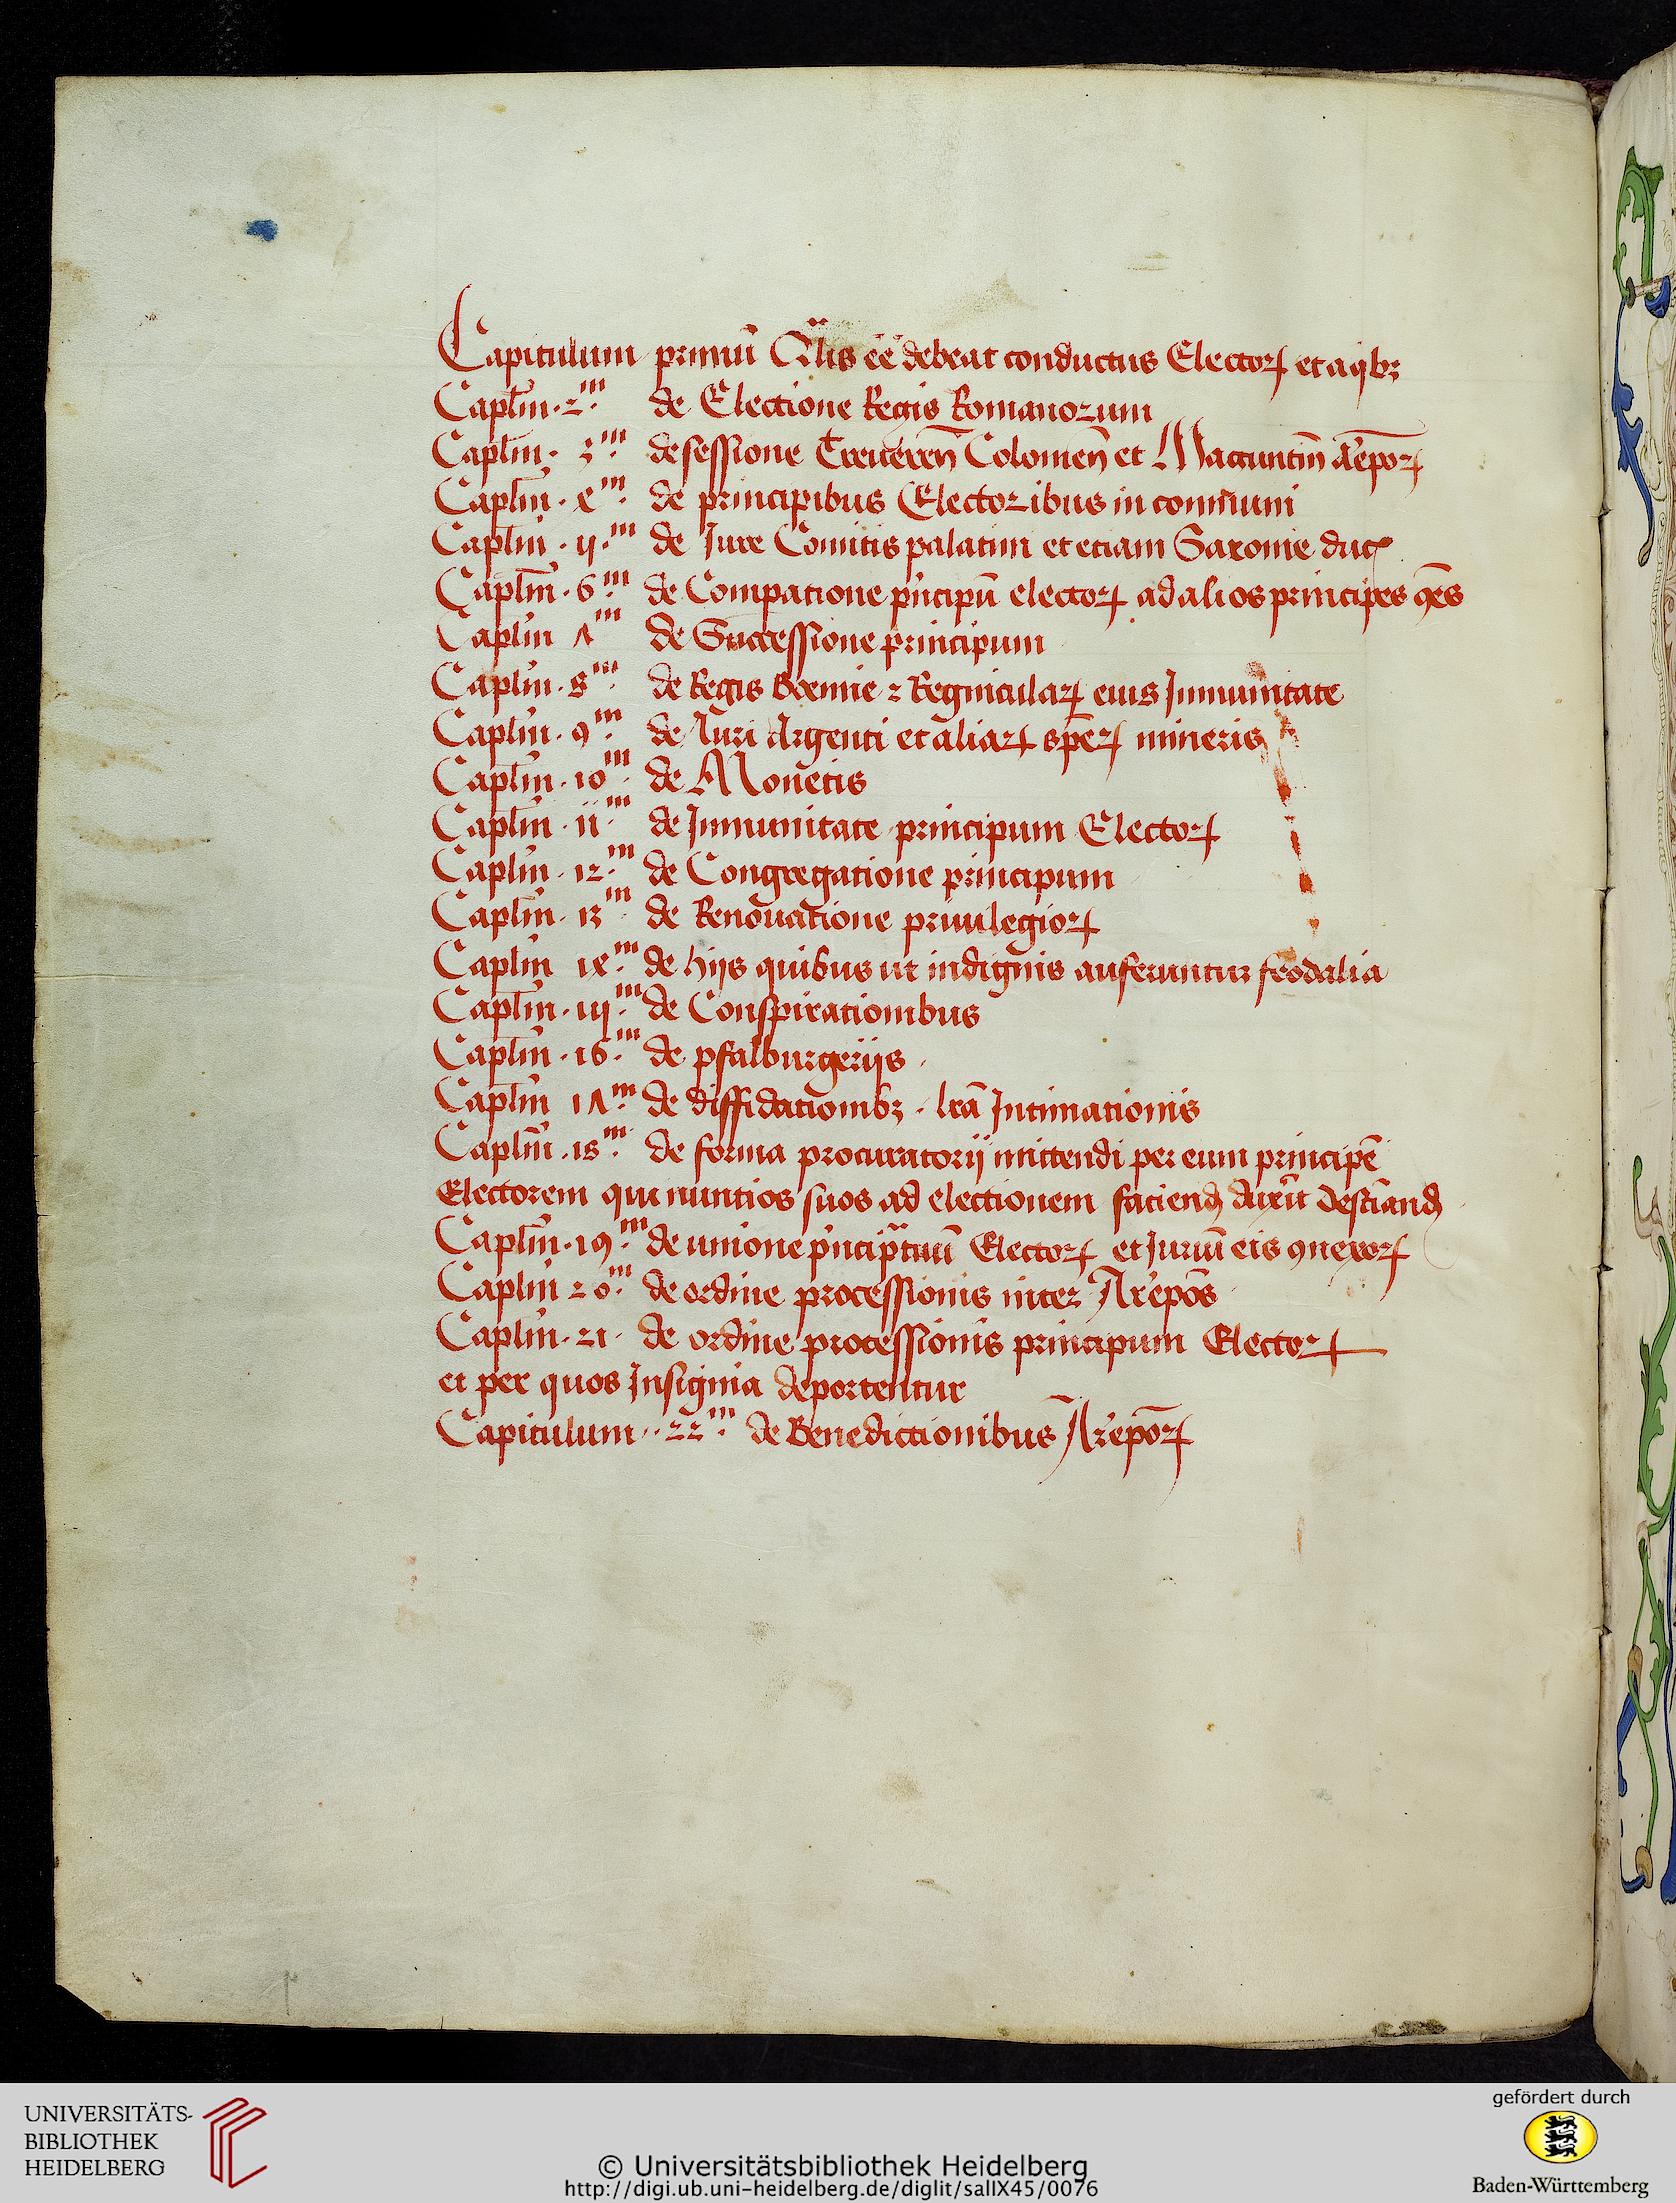 Capitulum primū Q̈lis eē debeat conductus Electoꝝ et a qͥbꝫ
Caplm̄ · 2ᵐ· de Electione Regis Romanorum
Caplm̄ · 3ᵐ· de sessione Treueren̄ Colonien̄ et Maguntin̄ Ar̄epoꝝ
Caplm̄ · 4ᵐ· de principibus Electoribus in communi
Caplm̄ · 5ᵐ· de Jure Comitis palatini et etiam Saxonie duc̄
Caplm̄ · 6ᵐ· de Compacione pn̄cipū electoꝝ ad alios principes ꝯēs
Caplm̄ 7ᵐ de Successione principum
Caplm̄ · 8ᵐ· de Regis Boemie ⁊ Regnicolaꝝ eius Jmmunitate
Caplm̄ · 9ᵐ· de Auri Argenti et aliaꝝ sper̄ mineris
Caplm̄ · 10ᵐ· de Monetis
Caplm̄ · 11ᵐ· de Jmmunitate principum Electoꝝ
Caplm̄ · 12ᵐ· de Congregatione principum
Caplm̄ · 13ᵐ· de Renouatione priuilegioꝝ
Caplm̄ 14ᵐ· de hijs quibus ut indignis auferuntur feodalia
Caplm̄ · 15ᵐ· de Conspirationibus
Caplm̄ · 16ᵐ· de pfalburgerijs ·
Caplm̄ 17ᵐ· de diffidationibꝫ · lrā Jntimationis
Caplm̄ · 18ᵐ· de forma procuratorij mittendi per eum principē
Electorem qui nuntios suos ad electionem faciend̄ duxerit destinand̄
Caplm̄ · 19ᵐ· de unione pn̄cipatuū Electoꝝ et Juriū eis ꝯnexoꝝ
Caplm̄ 20ᵐ· de ordine processionis inter Ar̄epōs
Caplm̄ · 21 · de ordine processionis principum Electoꝝ
et per quos Jnsignia deportentur
Capitulum · 22ᵐ· de Benedictionibus Ar̄epoꝝ
UNIVERSITÄTS-
BIBLIOTHEK
HEIDELBERG
© Universitätsbibliothek Heidelberg
http://digi.ub.uni-heidelberg.de/diglit/salIX45/0076
gefördert durch
Baden-Württemberg